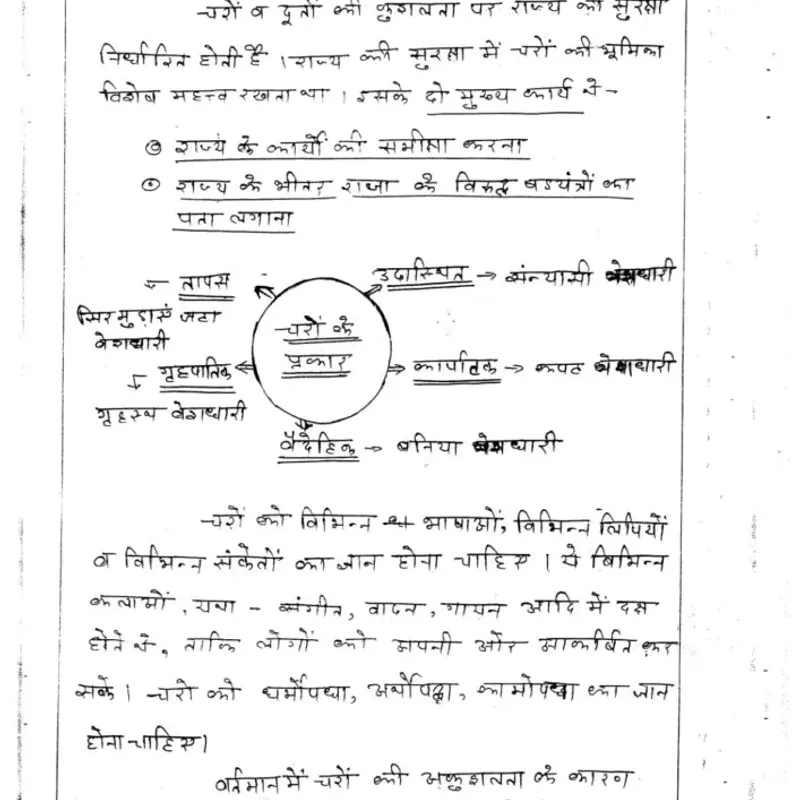 चरों व दूतों की कुशलता पर राज्य की सुरक्षा
निर्धारित होती है । राज्य की सुरक्षा में चरों की भूमिका
विशेष महत्त्व रखता था । इसके दो मुख्य कार्य थे -
राज्य के कार्यों की समीक्षा करना
राज्य के भीतर राजा के विरुद्ध षडयंत्रों का
पता लगाना
चरों के
प्रकार
तापस
सिर मुड़ाएं जटा
वेशधारी
उदास्थित → संन्यासी वेशधारी
गृहपातिक
गृहस्थ वेशधारी
कार्पातक → कपट वेशधारी
वैदेहिक → बनिया वेशधारी
चरों को विभिन्न भाषाओं, विभिन्न लिपियों
व विभिन्न संकेतों का ज्ञान होना चाहिए । ये विभिन्न
कलाओं, यथा - संगीत, वादन, गायन आदि में दक्ष
होते थे, ताकि लोगों को अपनी ओर आकर्षित कर
सके । चरो को धर्मोपधा, अर्थोपधा, कामोपधा का ज्ञान
होना चाहिए।
वर्तमान में चरों की अकुशलता के कारण